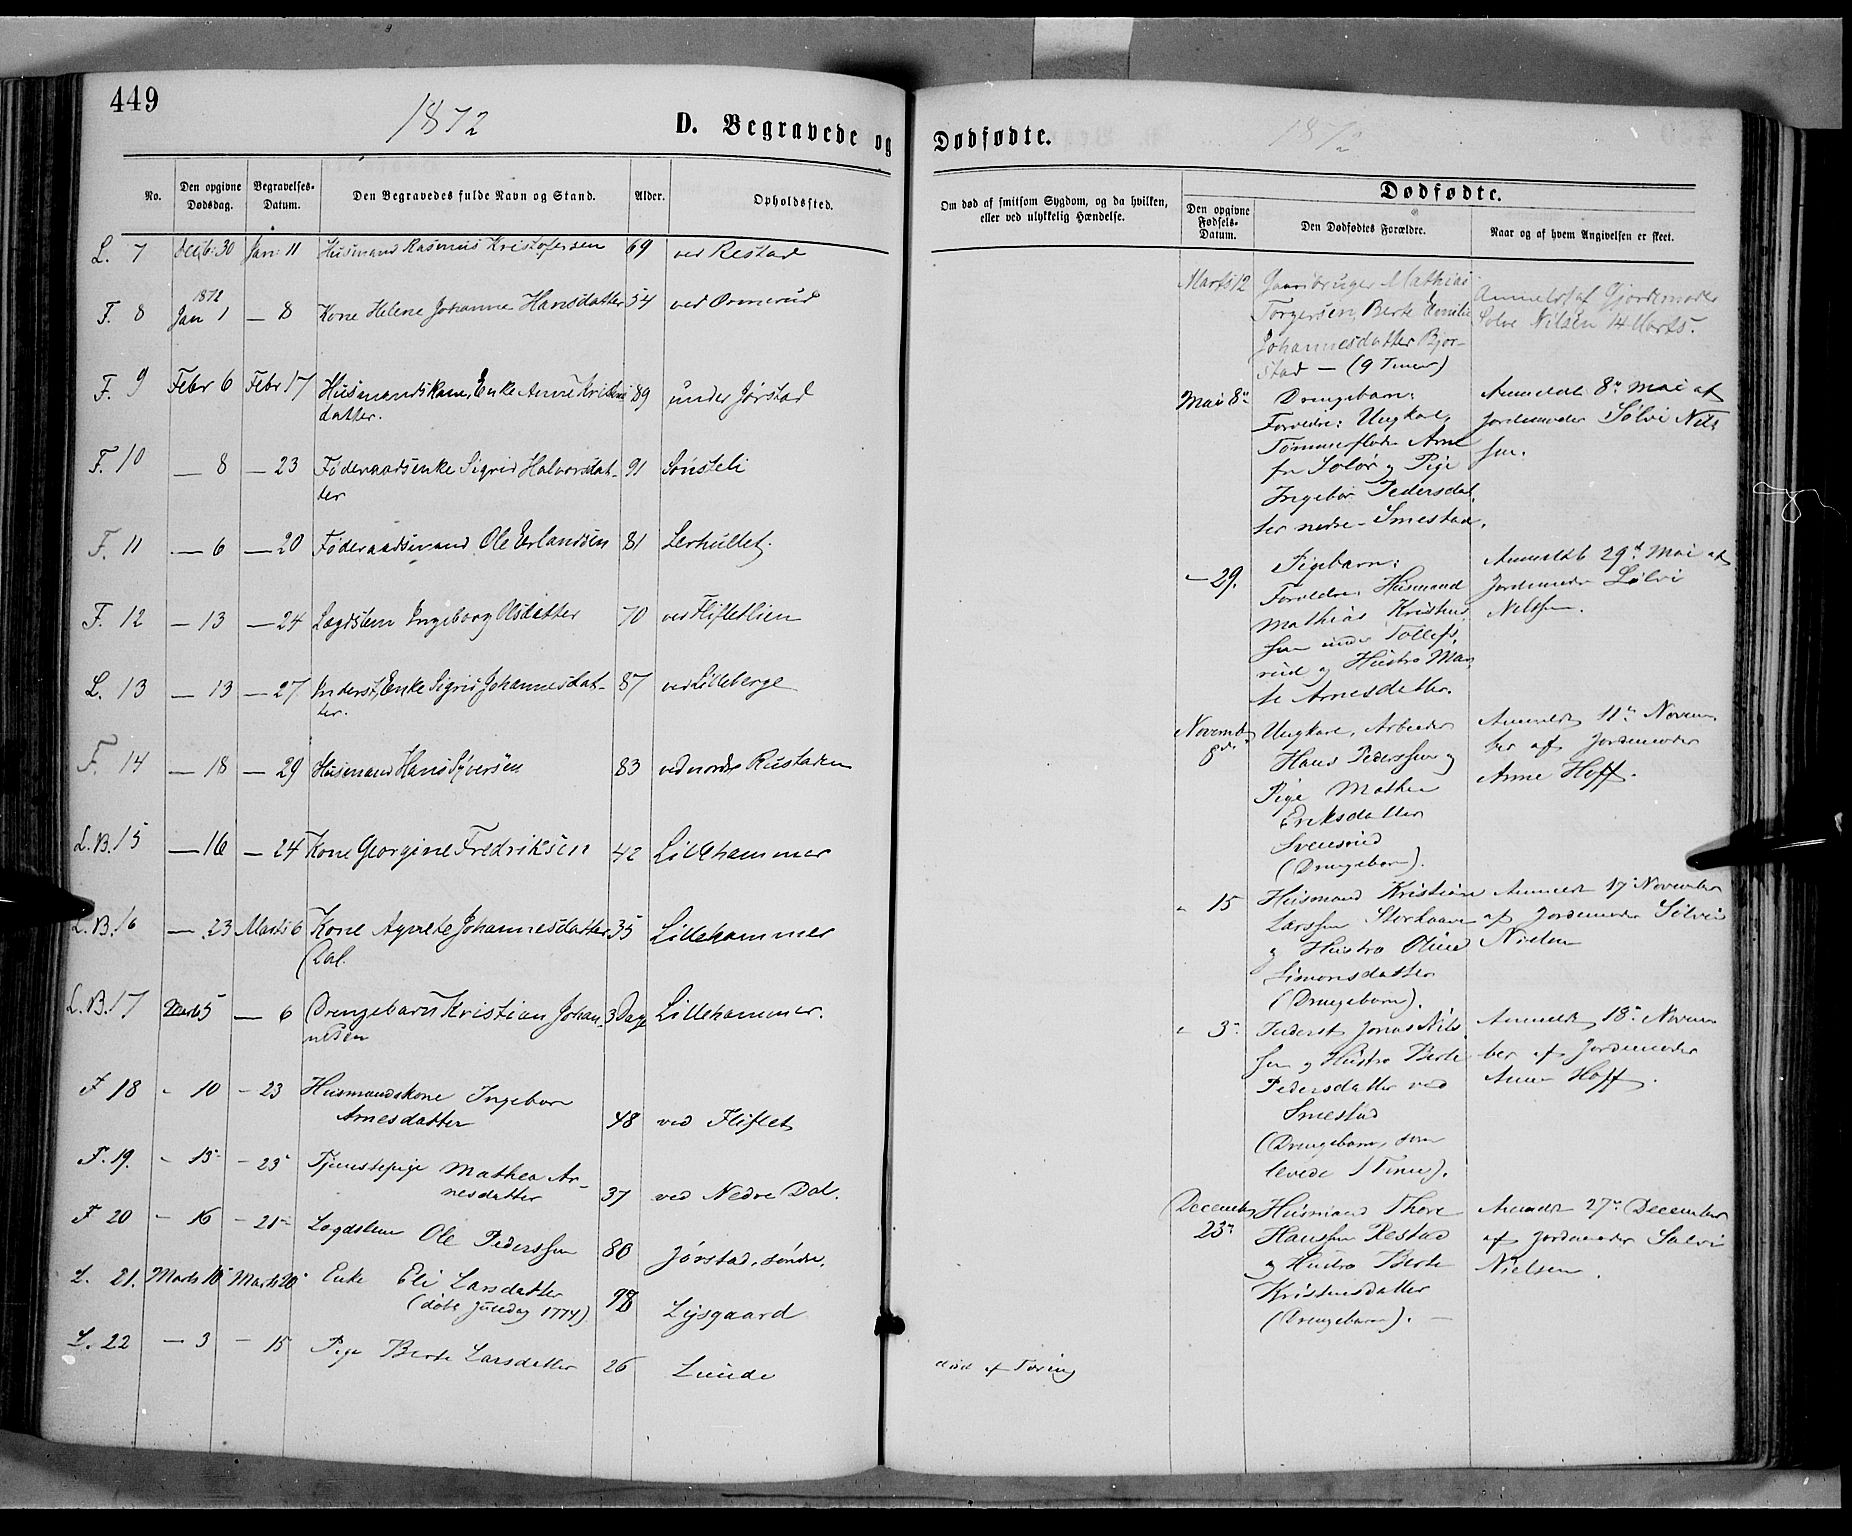 449
1872
D. Begravede og
No.
Den opgivne Dødsdag.
Begravelses-Datum.
Den Begravedes fulde Navn og Stand.
Alder.
Opholdssted.
L. 7 Decb: 30 Jan: 11 Husmand Rasmus Kristofersen 69 ved Restad
1872
F. 8 Jan 1 — 8 Kone Helene Johanne Hansdatter 54 ved Ormerud
F. 9 Febr 6 Febr 17 Husmandskone, Enke Anne Kristens 89 under Jørstad
datter.
F. 10 — 8 — 23 Føderaadsenke Sigrid Halvorsdat- 91 Sønsteli
ter
F. 11 — 6 — 20 Føderaadsmand Ole Erlandsen 81 Lerhullet
F. 12 — 13 — 24 Lægdslem Ingeborg Olsdatter 70 ved Flifletlien
L. 13 — 13 — 27 Inderst, Enke Sigrid Johannesdat- 87 ved Lilleberge
ter.
F. 14 — 18 — 29 Husmand Hans Syversen 83 ved nordre Rustaden
L.B. 15 — 16 — 24 Kone Georgine Fredriksen 42 Lillehammer
L.B. 16 — 23 Marts 6 Kone Agnete Johannesdatter 35 Lillehammer
Dal.
L.B. 17 Marts 5 — 6 Drengebarn Kristian Johan- 3 Dage Lillehammer.
nesen
F 18 - 10 - 23 Husmandskone Ingebor
Arnesdatter 48 ved Fliflet
F. 19. - 15 - 25 Tjenestepige Mathea Ar-
nesdatter 37 ved Nedre Dal.
F 20 - 16 - 21 Lægdslem Ole Pederssen 80 Jørstad, søndre.
L. 21. Marts 10 Marts 20 Enke Eli Larsdatter
(døbt Juledag 1774) 98 Lysgaard
L. 22 — 3 — 15 Pige Berte Larsdatter 26 Lunde
Dødfødte.
1872
Om død af smitsom Sygdom, og da hvilken,
eller ved ulykkelig Hændelse.
Dødfødte.
Den opgivne Fødsels-Datum.
Den Dødfødtes Forældre.
Naar og af hvem Angivelsen er skeet.
Marts 12 Gaardbruger Mathias
Torgersen, Berte Emilie
Johannesdatter Bjør-
stad — (9 Timer)
Anmeldt af Gjordemoder
Solve Nilsen 14 Marts.
Mai 8de Drengebarn:
Forældre: Ungkarl,
Tømmerfløder Arne
fra Solør og Pige
Ingebor Pedersdat-
ter nedre Smestad.
Anmeldt 8de Mai af
Jordemoder Sølvi Nils
sen.
— 29. Pigebarn:
Forældre: Husmand
Mathias Kristens
sen under Tollefs-
rud og Hustro Mar-
te Arnesdatter.
Anmeldt 29de Mai af
Jordemoder Sølvi
Nilssen.
Novemb. 8de Ungkarl, Arbeider
Hans Pederssen og
Pige Mathea
Eriksdatter
Svensrud
(Drengebarn).
Anmeldt 11te Novem
ber af Jordemoder
Anne Hoff.
- 15 Husmand Kristian
Larssen Storhaave
og Hustro Oline
Simonsdatter
(Drengebarn).
Anmeldt 17 November
af Jordemoder Sølvi
Nielsen
- 3 Inderst Jonas Nils
sen og Hustro Berte
Pedersdatter ved
Smestad
(Drengebarn, som
levede 1 Time).
Anmeldt 18 Novem
ber af Jordemoder
Anne Hoff.
December 23de Husmand Thore
Hanssen Restad
og Hustro Berte
Kristensdatter
(Drengebarn). —
Anmeldt 27de December
af Jordemoder Sølvi
Nielsen.
død af Tæring